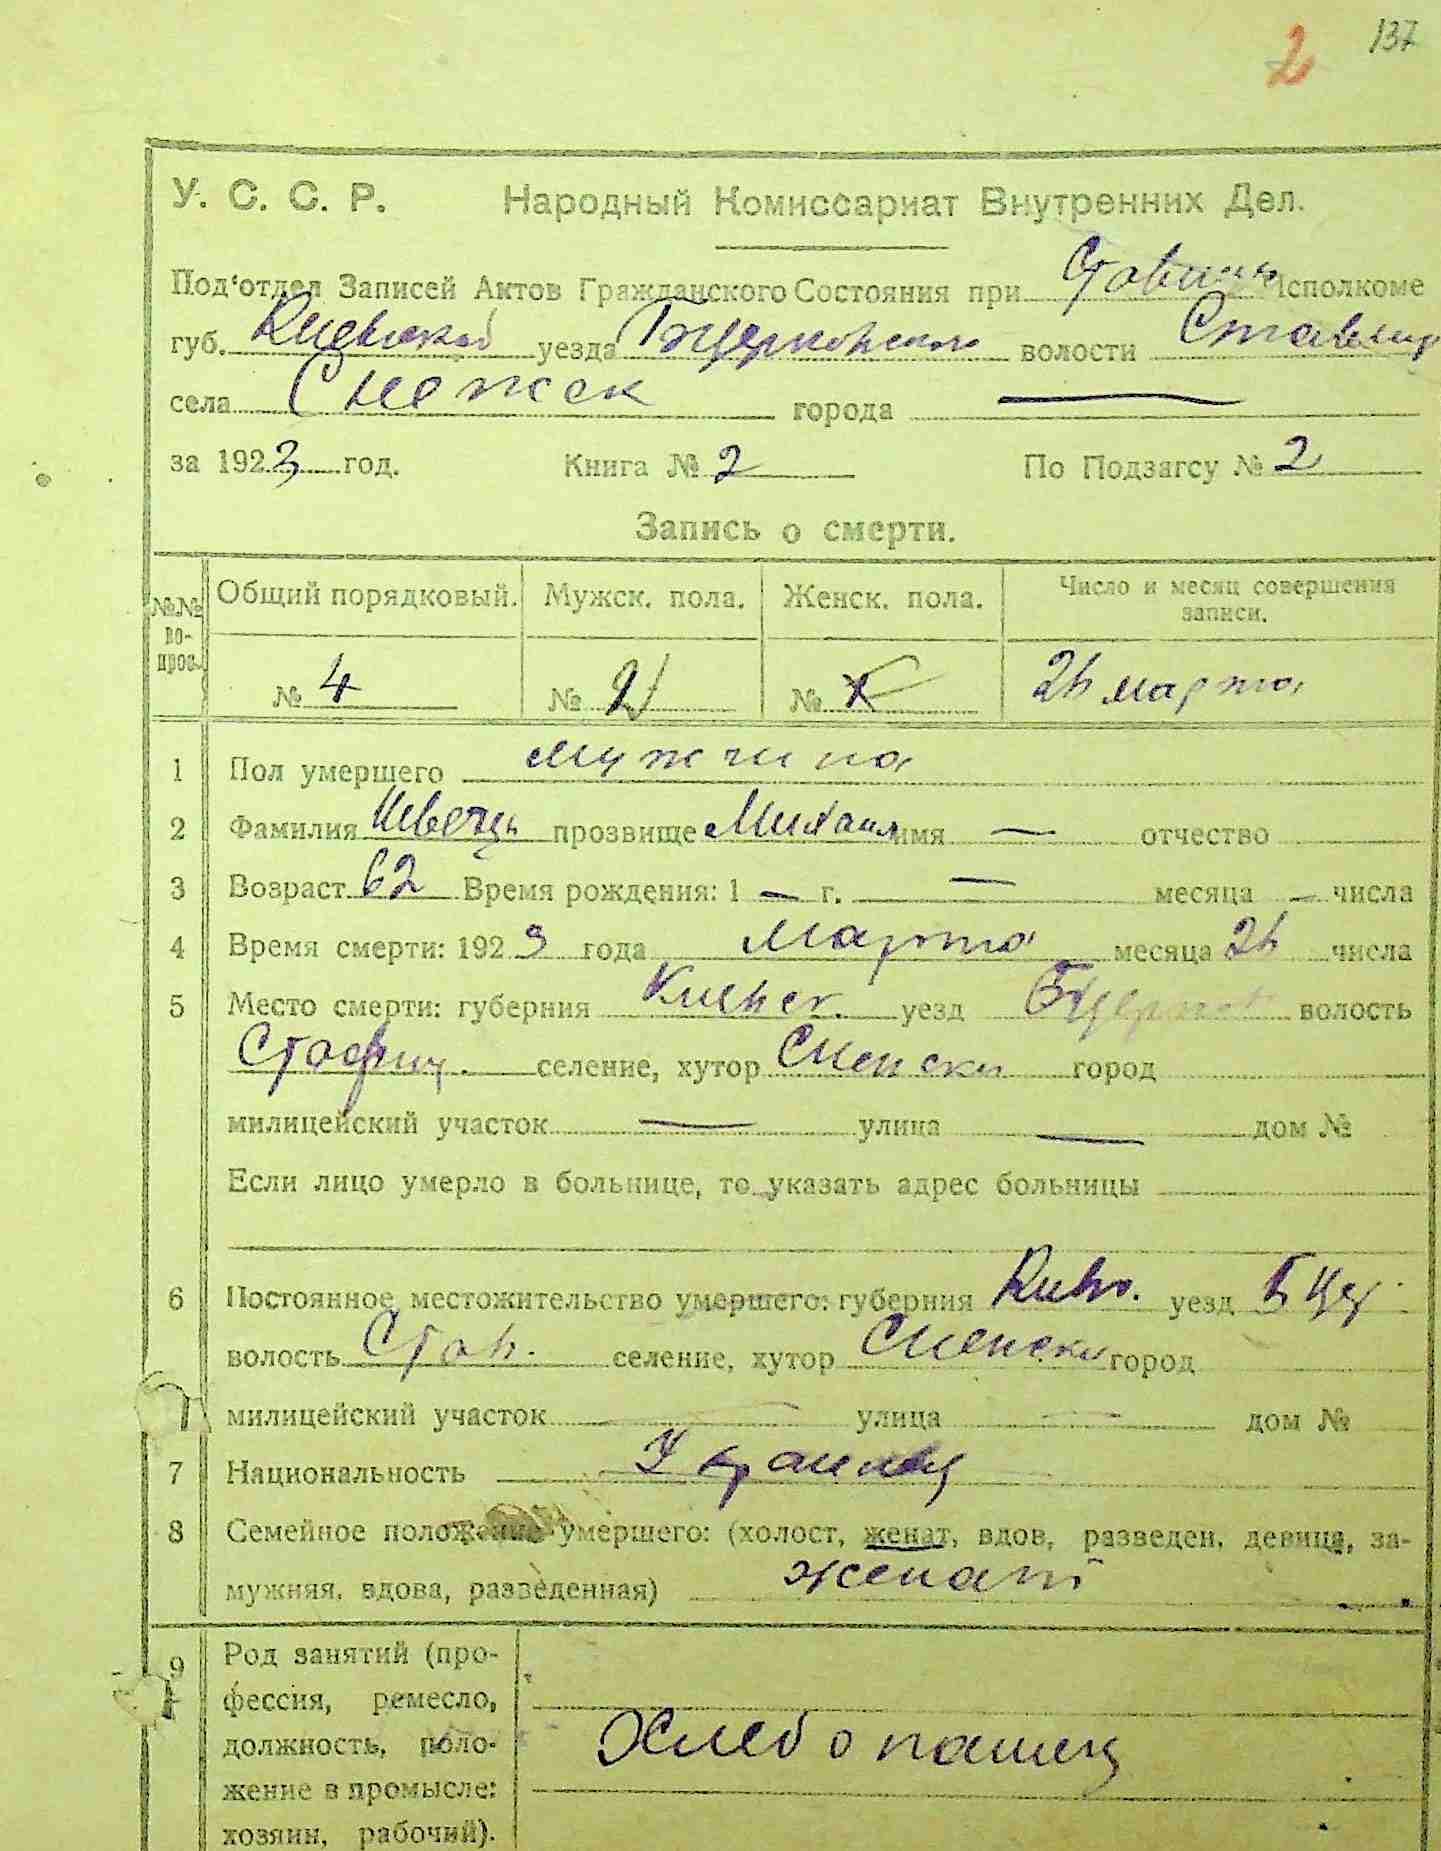 2 137
У. С. С. Р. Народный Комиссариат Внутренних Дел.
Под'отдел Записей Актов Гражданского Состояния при Исполкоме
губ. Киевской уезда Бцерковского волости Ставищ
села города —
за 1923 год. Книга № 2 По Подзагсу № 2
Запись о смерти.
№№ вопрос. Общий порядковый. Мужск. пола. Женск. пола. Число и месяц совершения записи.
№ 4 № № марта
1 Пол умершего мужчина
2 Фамилия Швець прозвище Михаил имя — отчество
3 Возраст 62 Время рождения: 1 — г. — месяца — числа
4 Время смерти: 1923 года марта месяца числа
5 Место смерти: губерния Киевск. уезд Бцерков волость
Ставищ. селение, хутор город
милицейский участок — улица — дом №
Если лицо умерло в больнице, то указать адрес больницы
6 Постоянное местожительство умершего: губерния Киев. уезд БЦер.
волость Став. селение, хутор город
милицейский участок — улица — дом №
7 Национальность Украинец
8 Семейное положение умершего: (холост, женат, вдов, разведен, девица, за-
мужняя, вдова, разведенная) женат
9 Род занятий (про-
фессия, ремесло,
должность, поло- Хлебопашец
жение в промысле:
хозяин, рабочий).